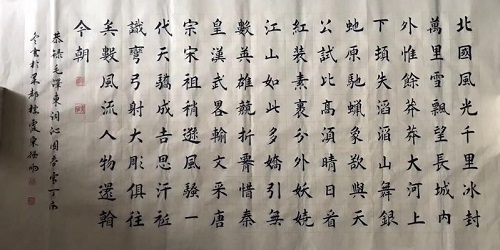 北國風光千里冰封
萬里雪飄望長城内
外惟餘莽莽大河上
下頓失滔滔山舞銀
虵原馳蠟象欲與天
公試比高須晴日看
紅装素裹分外妖嬈
江山如此多嬌引無
數英雄競折腰惜秦
皇漢武畧輸文采唐
宗宋祖稍遜風騷一
代天驕成吉思汗祗
識彎弓射大彫俱往
矣數風流人物還
今朝
恭録毛澤東词沁園春雪丁酉
書於